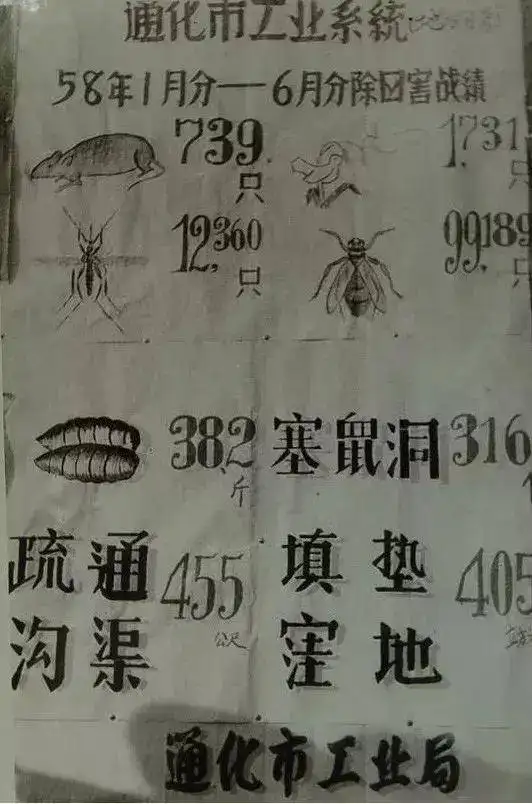 通化市工业系统
58年1月分—6月分除四害战绩
739只
1,731只
12,360只
99,189只
38.2斤
塞鼠洞 316
疏通沟渠 455公尺
填垫窪地 405
通化市工业局